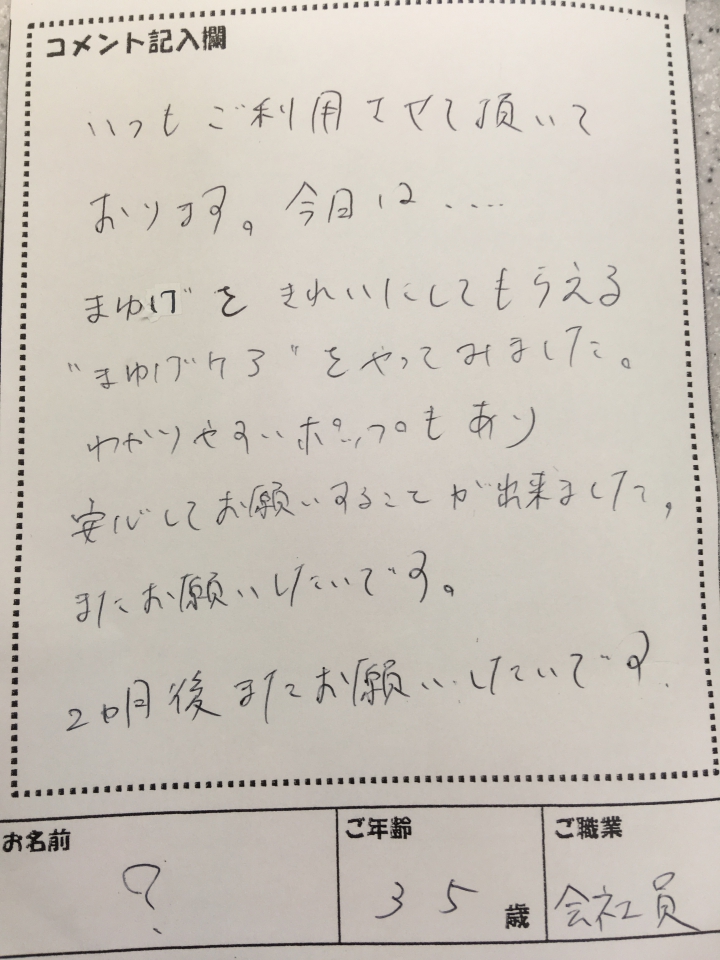 コメント記入欄
いつもご利用させて頂いて
おります。今日は....
まゆげをきれいにしてもらえる
"まゆげケア"をやってみました。
わかりやすいポップもあり
安心してお願いすることが出来ました,
またお願いしたいです。
2カ月後またお願いしたいです.
お名前 ?
ご年齢 35歳
ご職業 会社員